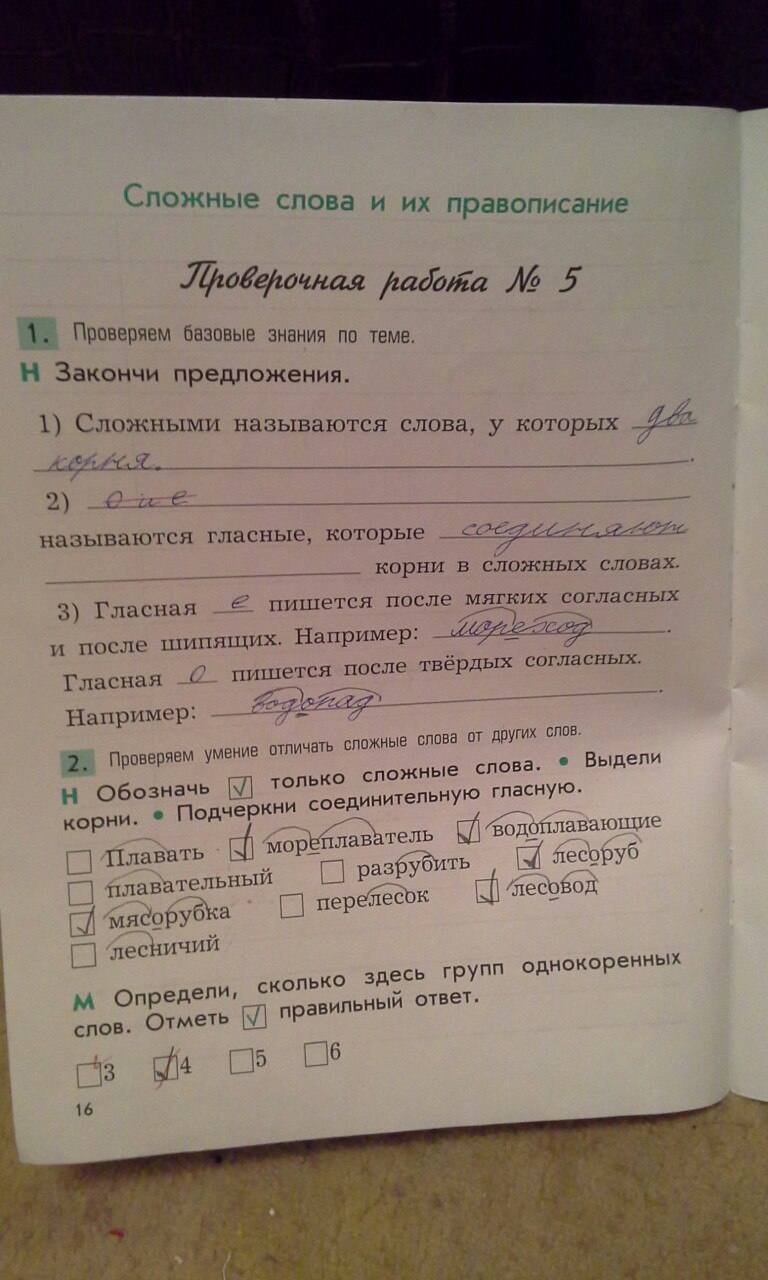 Сложные слова и их правописание
Проверочная работа № 5
1. Проверяем базовые знания по теме.
Н Закончи предложения.
1) Сложными называются слова, у которых два
корня. .
2) о и е
называются гласные, которые соединяют
корни в сложных словах.
3) Гласная е пишется после мягких согласных
и после шипящих. Например: мореход .
Гласная о пишется после твёрдых согласных.
Например: водопад .
2. Проверяем умение отличать сложные слова от других слов.
Н Обозначь ☑ только сложные слова. • Выдели
корни. • Подчеркни соединительную гласную.
☐ Плавать ☑ мореплаватель ☑ водоплавающие
☐ плавательный ☐ разрубить ☑ лесоруб
☑ мясорубка ☐ перелесок ☑ лесовод
☐ лесничий
М Определи, сколько здесь групп однокоренных
слов. Отметь ☑ правильный ответ.
☐ 3 ☑ 4 ☐ 5 ☐ 6
16